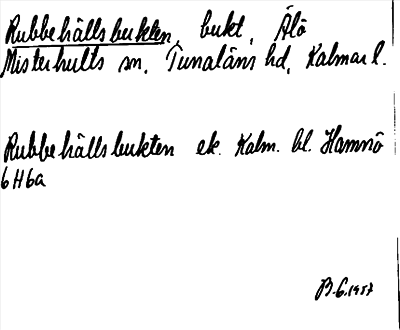 Rubbehällsbukten, bukt, Älö
Misterhults sn, Tunaläns hd, Kalmar l.
Rubbehällsbukten ek. Kalm. bl. Hamnö
6H6a
B.G. 1957